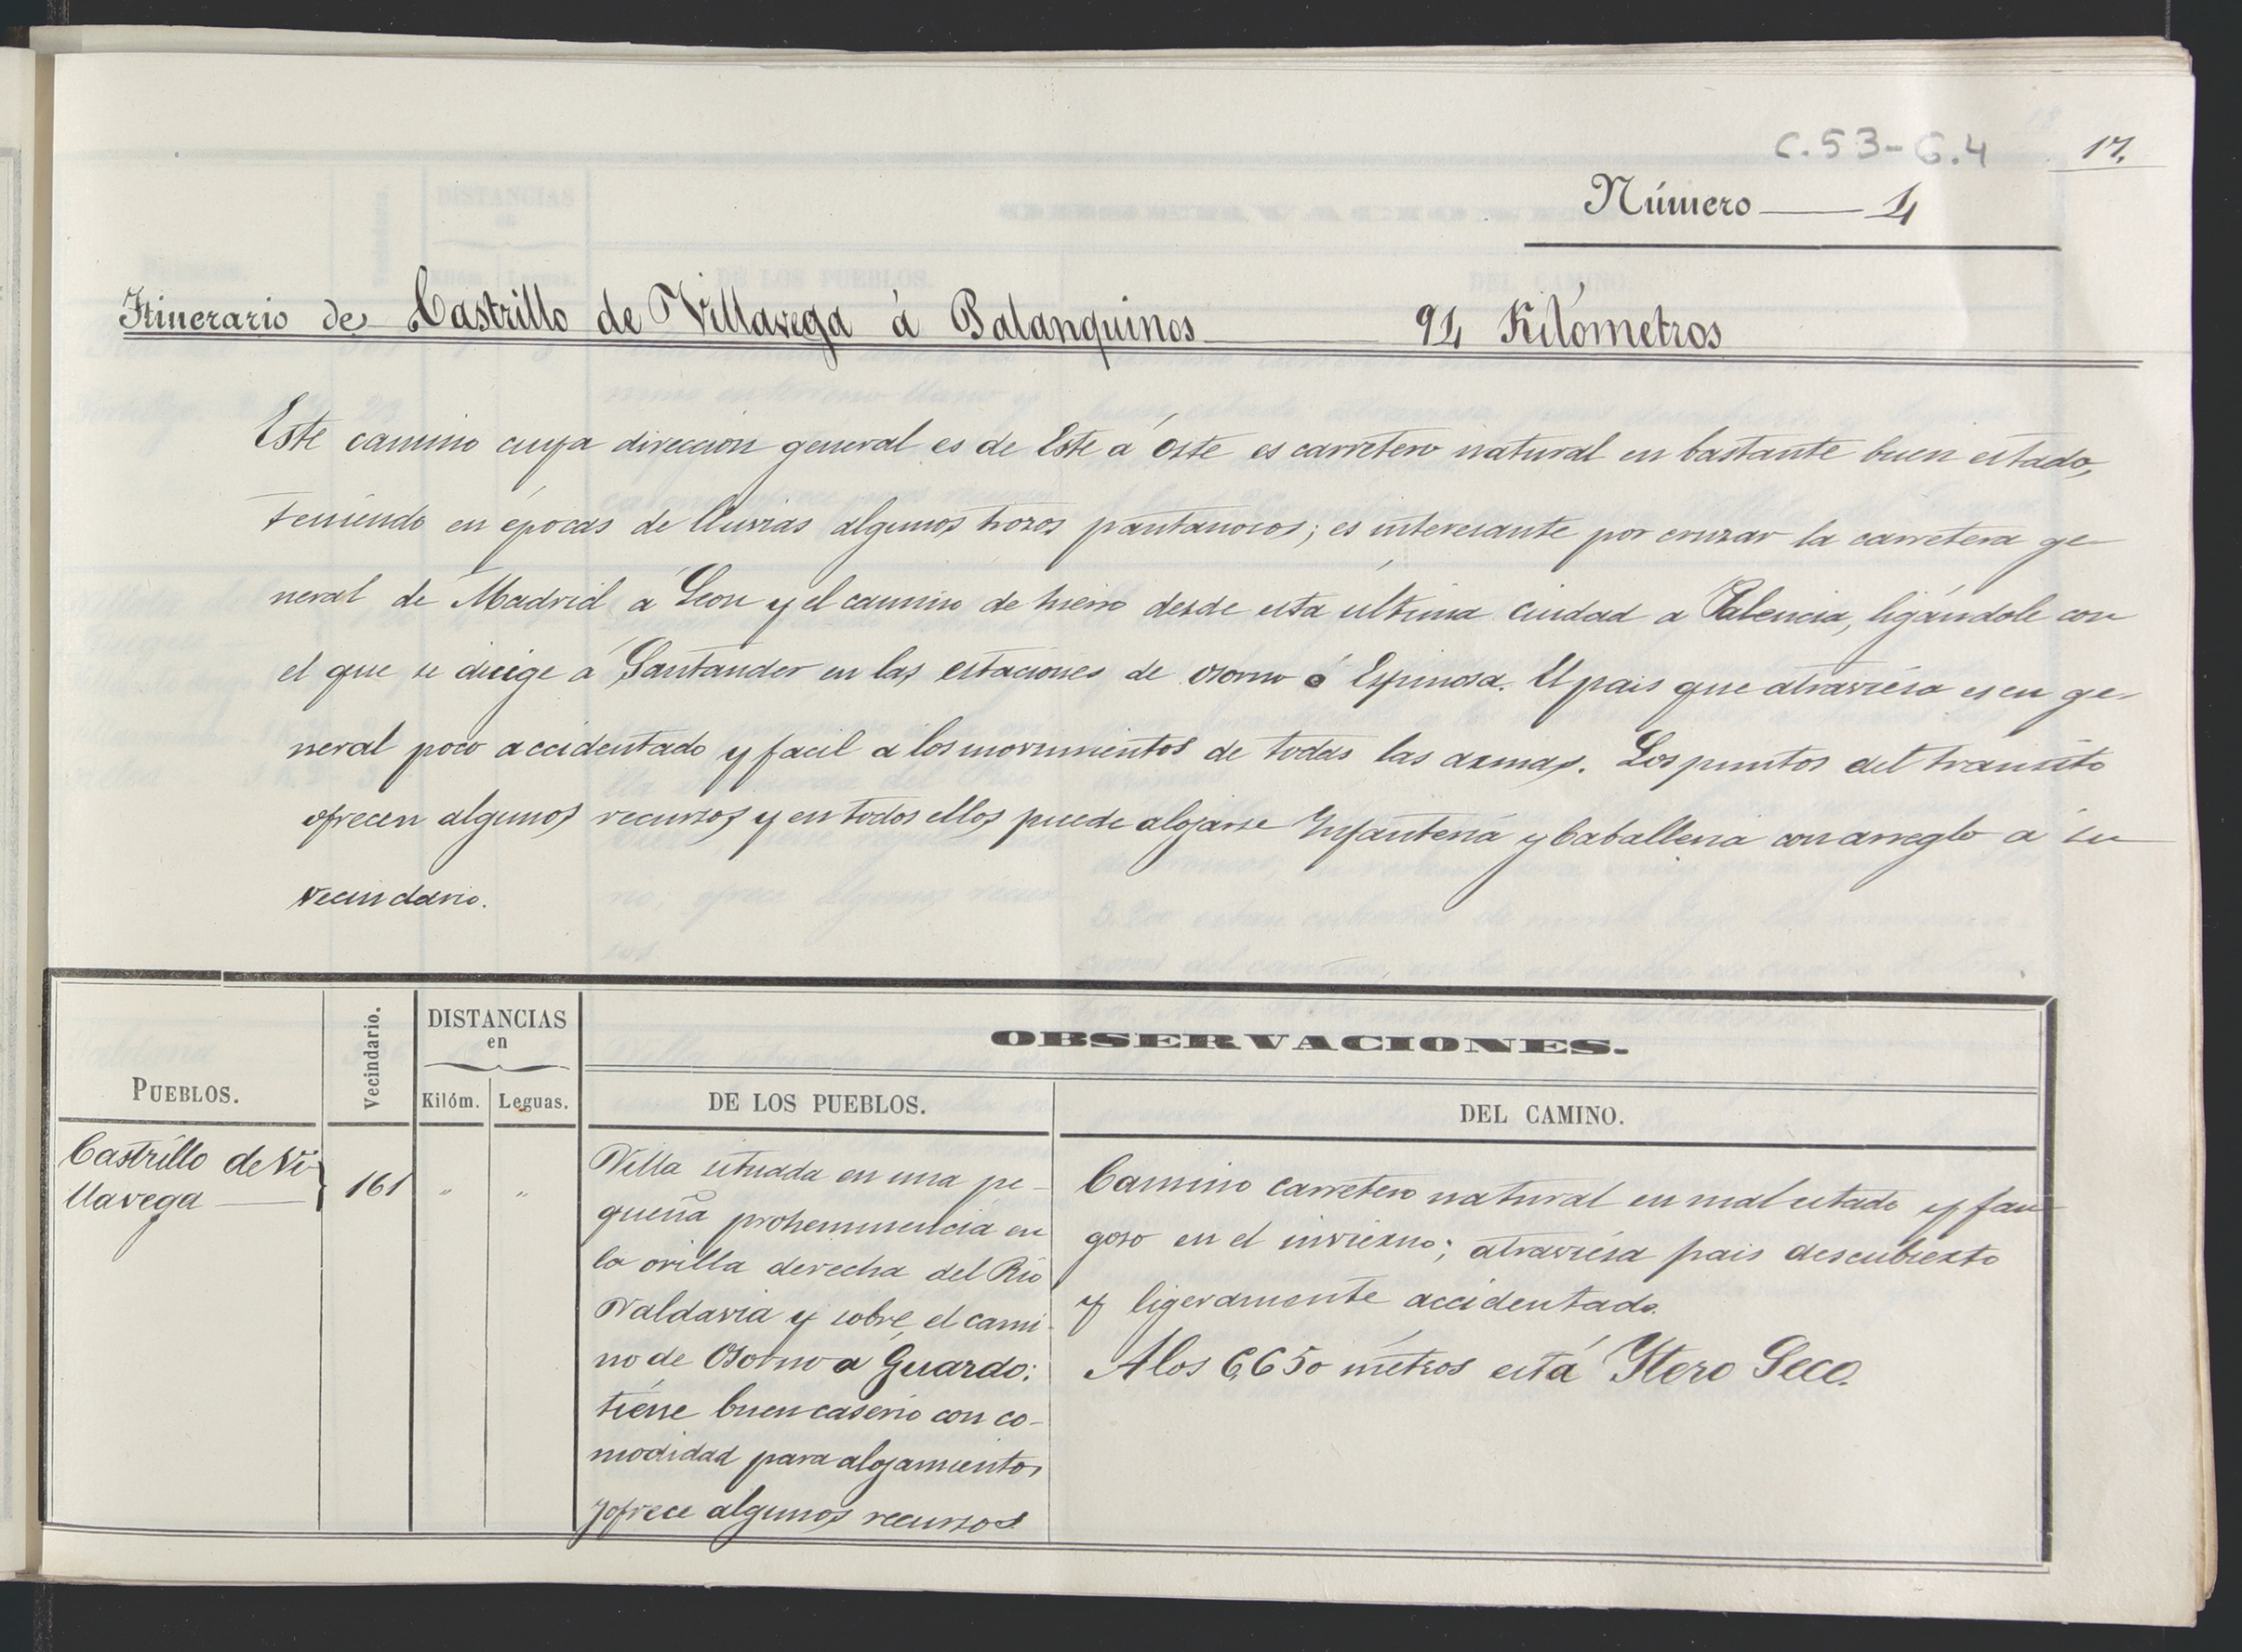 C.53-G.4
17.
Número 4
Itinerario de Castrillo de Villavega á Palanquinos 94 Kilómetros
Este camino cuya direccion general es de Este á Oste es carretero natural en bastante buen estado,
teniendo en épocas de lluvias algunos trozos pantanosos; es interesante por cruzar la carretera ge-
neral de Madrid á Leon y el camino de hierro desde esta última ciudad a Palencia, ligándole con
el que se dirige á Santander en las estaciones de Osorno ó Espinosa. El pais que atraviesa es en ge-
neral poco accidentado y facil a los movimientos de todas las armas. Los puntos del transito
ofrecen algunos recursos y en todos ellos puede alojarse Infanteria y Caballeria con arreglo á su
vecindario.
PUEBLOS.
Vecindario.
DISTANCIAS
en
Kilóm.
Leguas.
OBSERVACIONES.
DE LOS PUEBLOS.
DEL CAMINO.
Castrillo de Vi-
llavega
161
"
"
Villa situada en una pe-
queña prohemminencia en
la orilla derecha del Rio
Valdavia y sobre el cami-
no de Osorno a Guardo:
tiene buen caserio con co-
modidad para alojamientos
y ofrece algunos recursos
Camino carretero natural en mal estado y fan-
goso en el invierno; atraviesa pais descubierto
y ligeramente accidentado.
A los 6,650 métros está Ytero Seco.